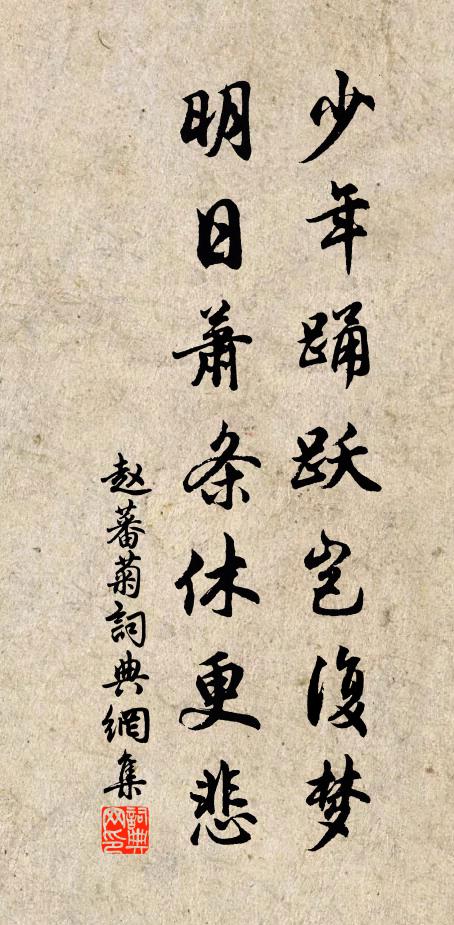 少年踊跃岂復梦
明日萧条休更悲
赵蕃菊詞典網集
詞典网印